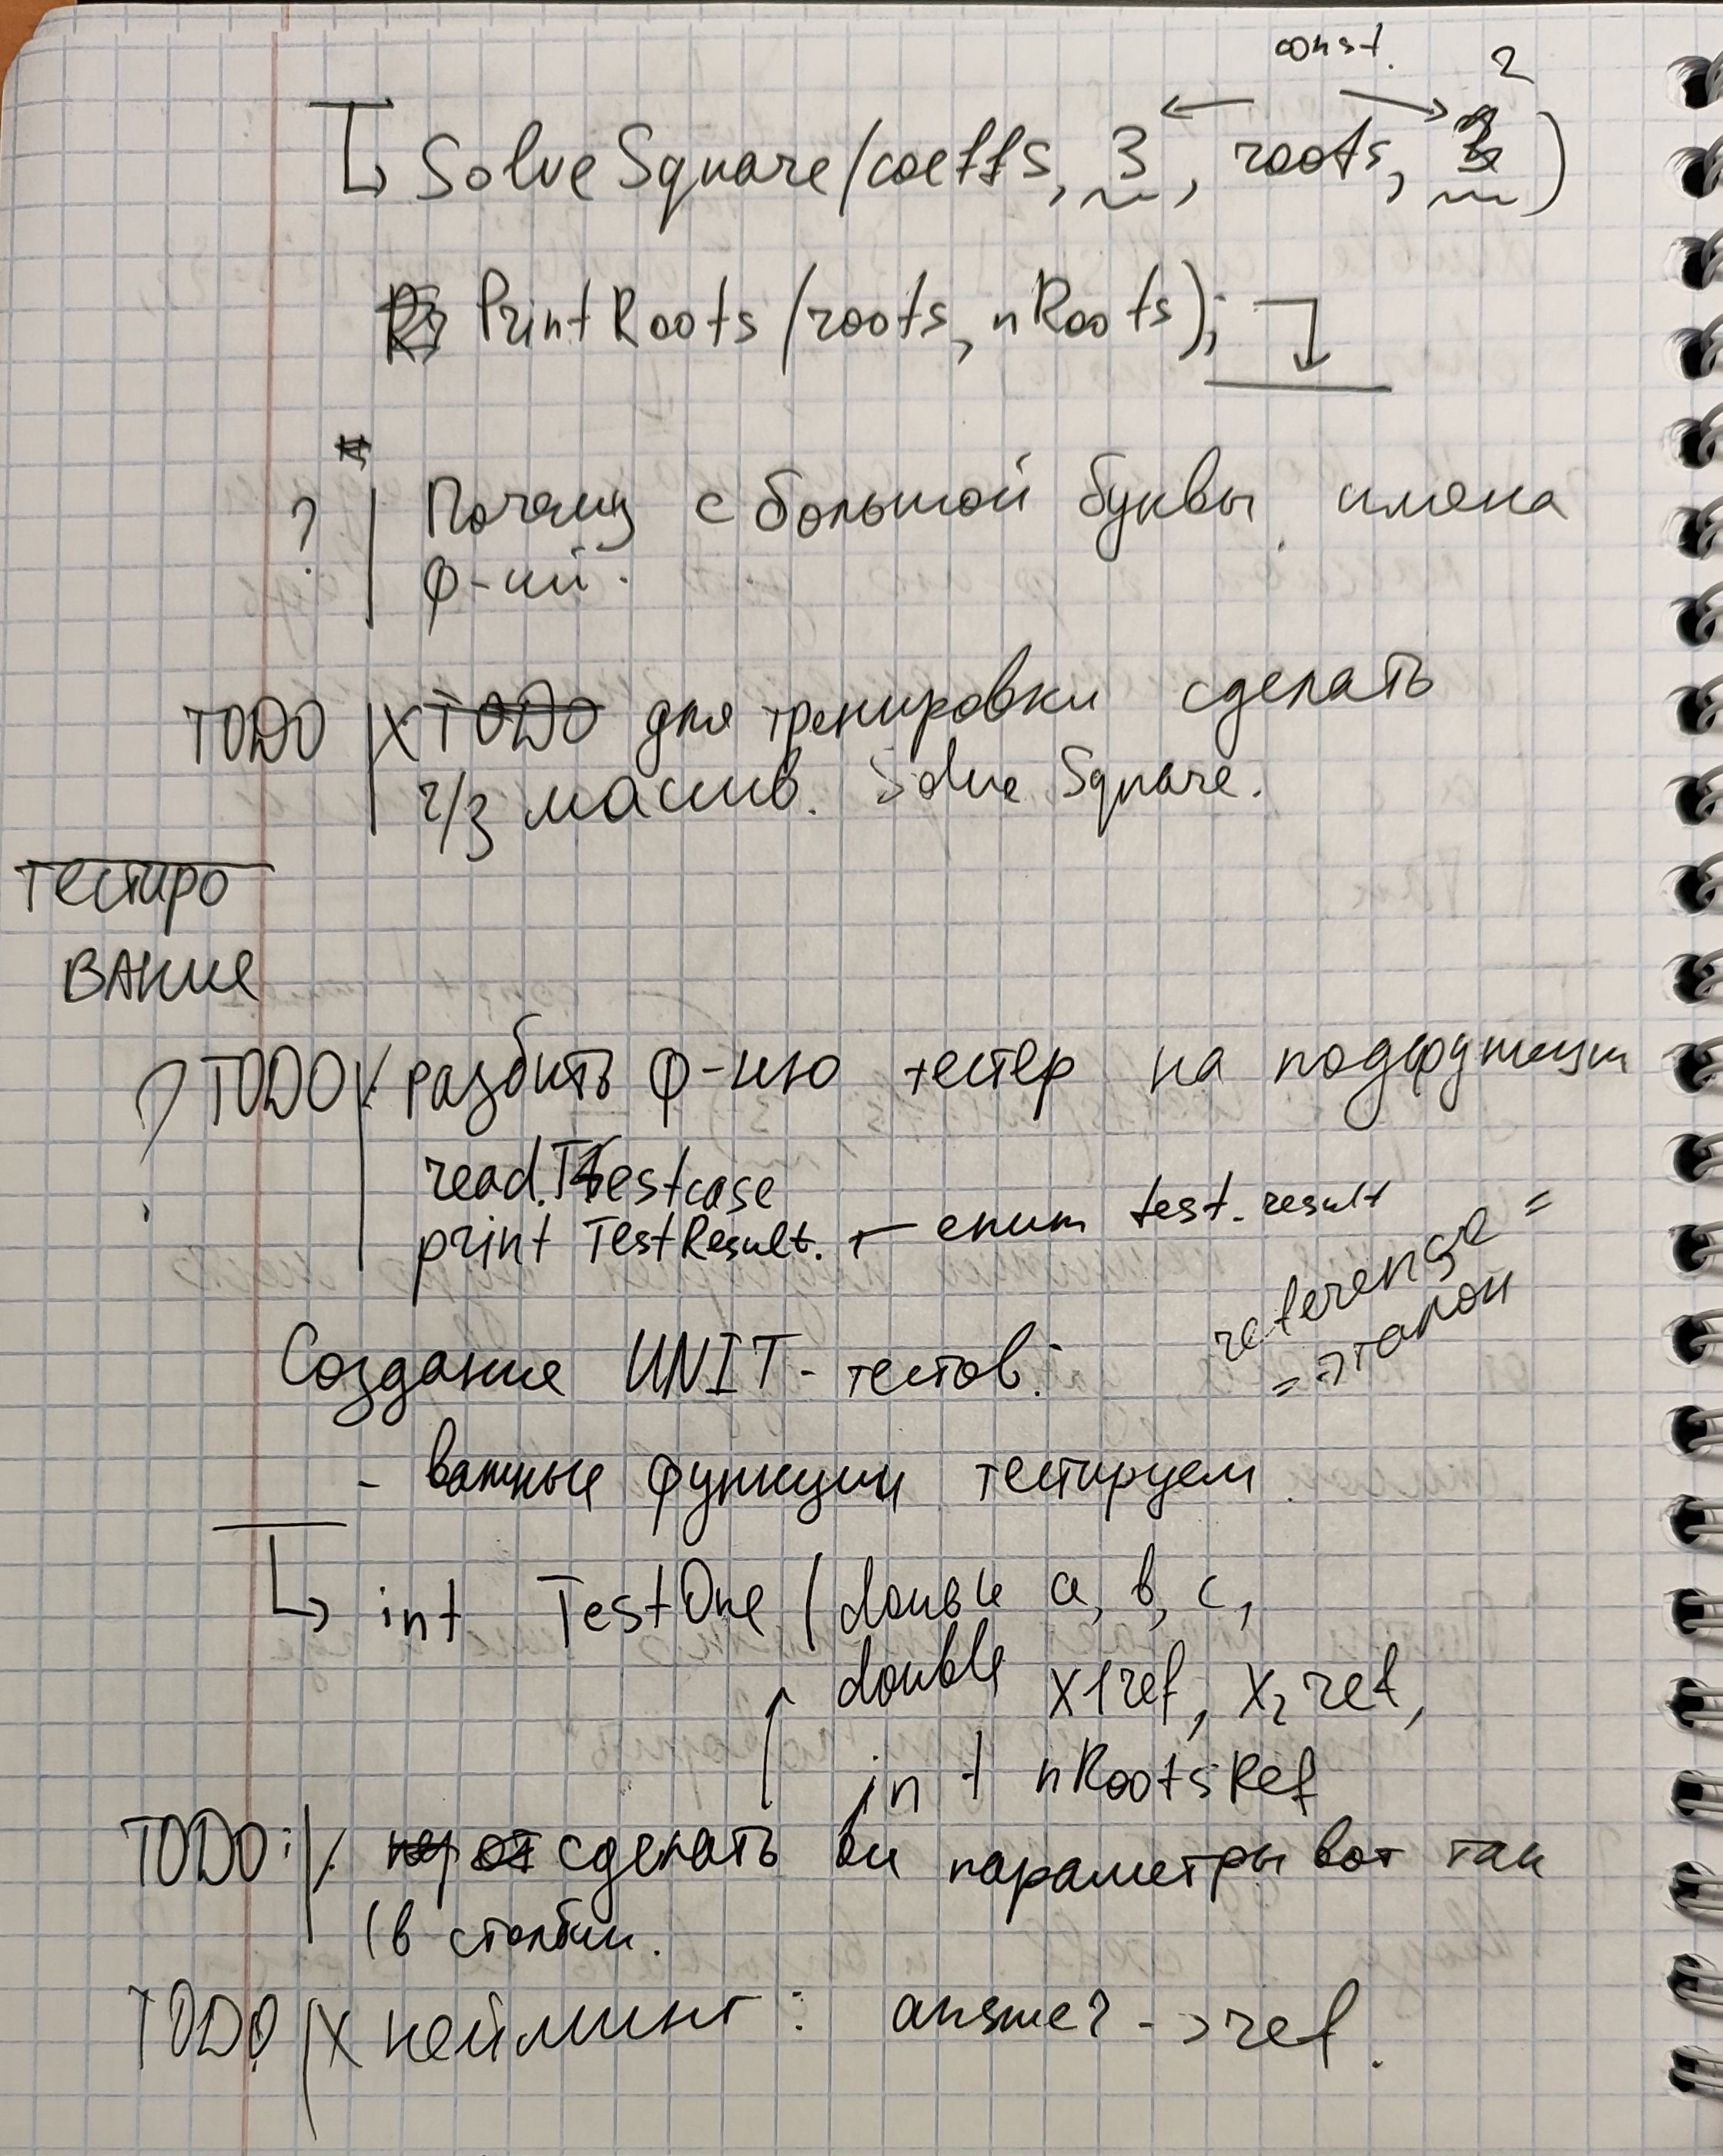 const. 2
SolveSquare(coeffs, 3, roots, )
PrintRoots(roots, nRoots);
? Почему с большой буквы имена
ф-ций.
TODO X TODO для тренировки сделать
ч/з массив. Solve Square.
Тестиро
вание
? TODO разбить ф-цию тестер на подфункции
read Testcase
print TestResult. ← enum test_result
reference =
= эталон
Создание UNIT-тестов:
- важные функции тестируем.
int TestOne (double a, b, c,
double x1ref, x2ref,
int nRootsRef
TODO: сделать параметры вот так
(в столбик.
TODO X нейминг: answer -> ref.